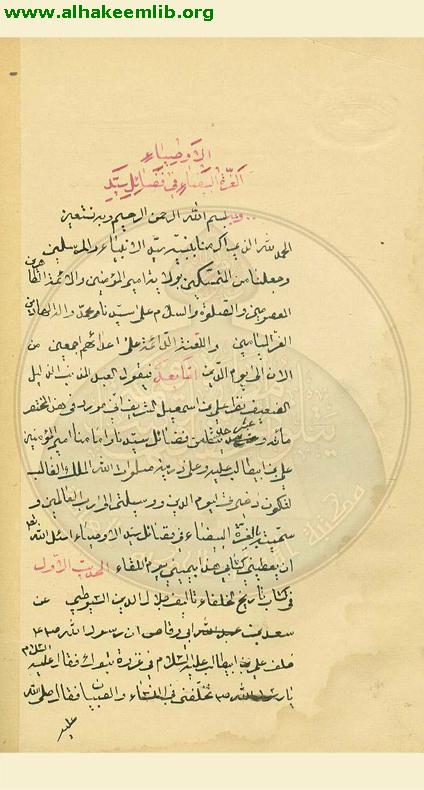 www.alhakeemlib.org
الاوصياء
الغرة البيضاء في فضائل سيد
بسم الله الرحمن الرحيم وبه نستعين
الحمد لله الذي اكرمنا بنبيه سيد الانبياء والمرسلين
وجعلنا من المتمسكين بولاية امير المؤمنين والائمة الطاهرين
المعصومين والصلوة والسلام على سيدنا محمد واله الهادين
الغر الميامين واللعنة الدائمة على اعدائهم اجمعين من
الان الى يوم الدين اما بعد فيقول العبد المذنب الذليل
الضعيف نظر علي بن اسمعيل الشريف مورد في هذا المختصر
مائة و حديثا من فضائل سيدنا وامامنا امير المؤمنين
علي بن ابيطالب عليه وعلى ذريته صلوات الله الملك الغالب
لتكون ذخري ليوم الدين ووسيلتي الى رب العالمين و
سميته بالغرة البيضاء في فضائل سيد الاوصياء اسئل الله
ان يعطيني كتابي هذا بيميني يوم اللقاء الحديث الاول
في كتاب تاريخ الخلفاء تاليف جلال الدين السيوطي عن
سعد بن ابي وقاص ان رسول الله ص
خلف علي بن ابيطالب عليه السلام في غزوة تبوك فقال عليه السلام
يا رسول الله ص تخلفني في النساء والصبيان فقال صلى الله
عليه